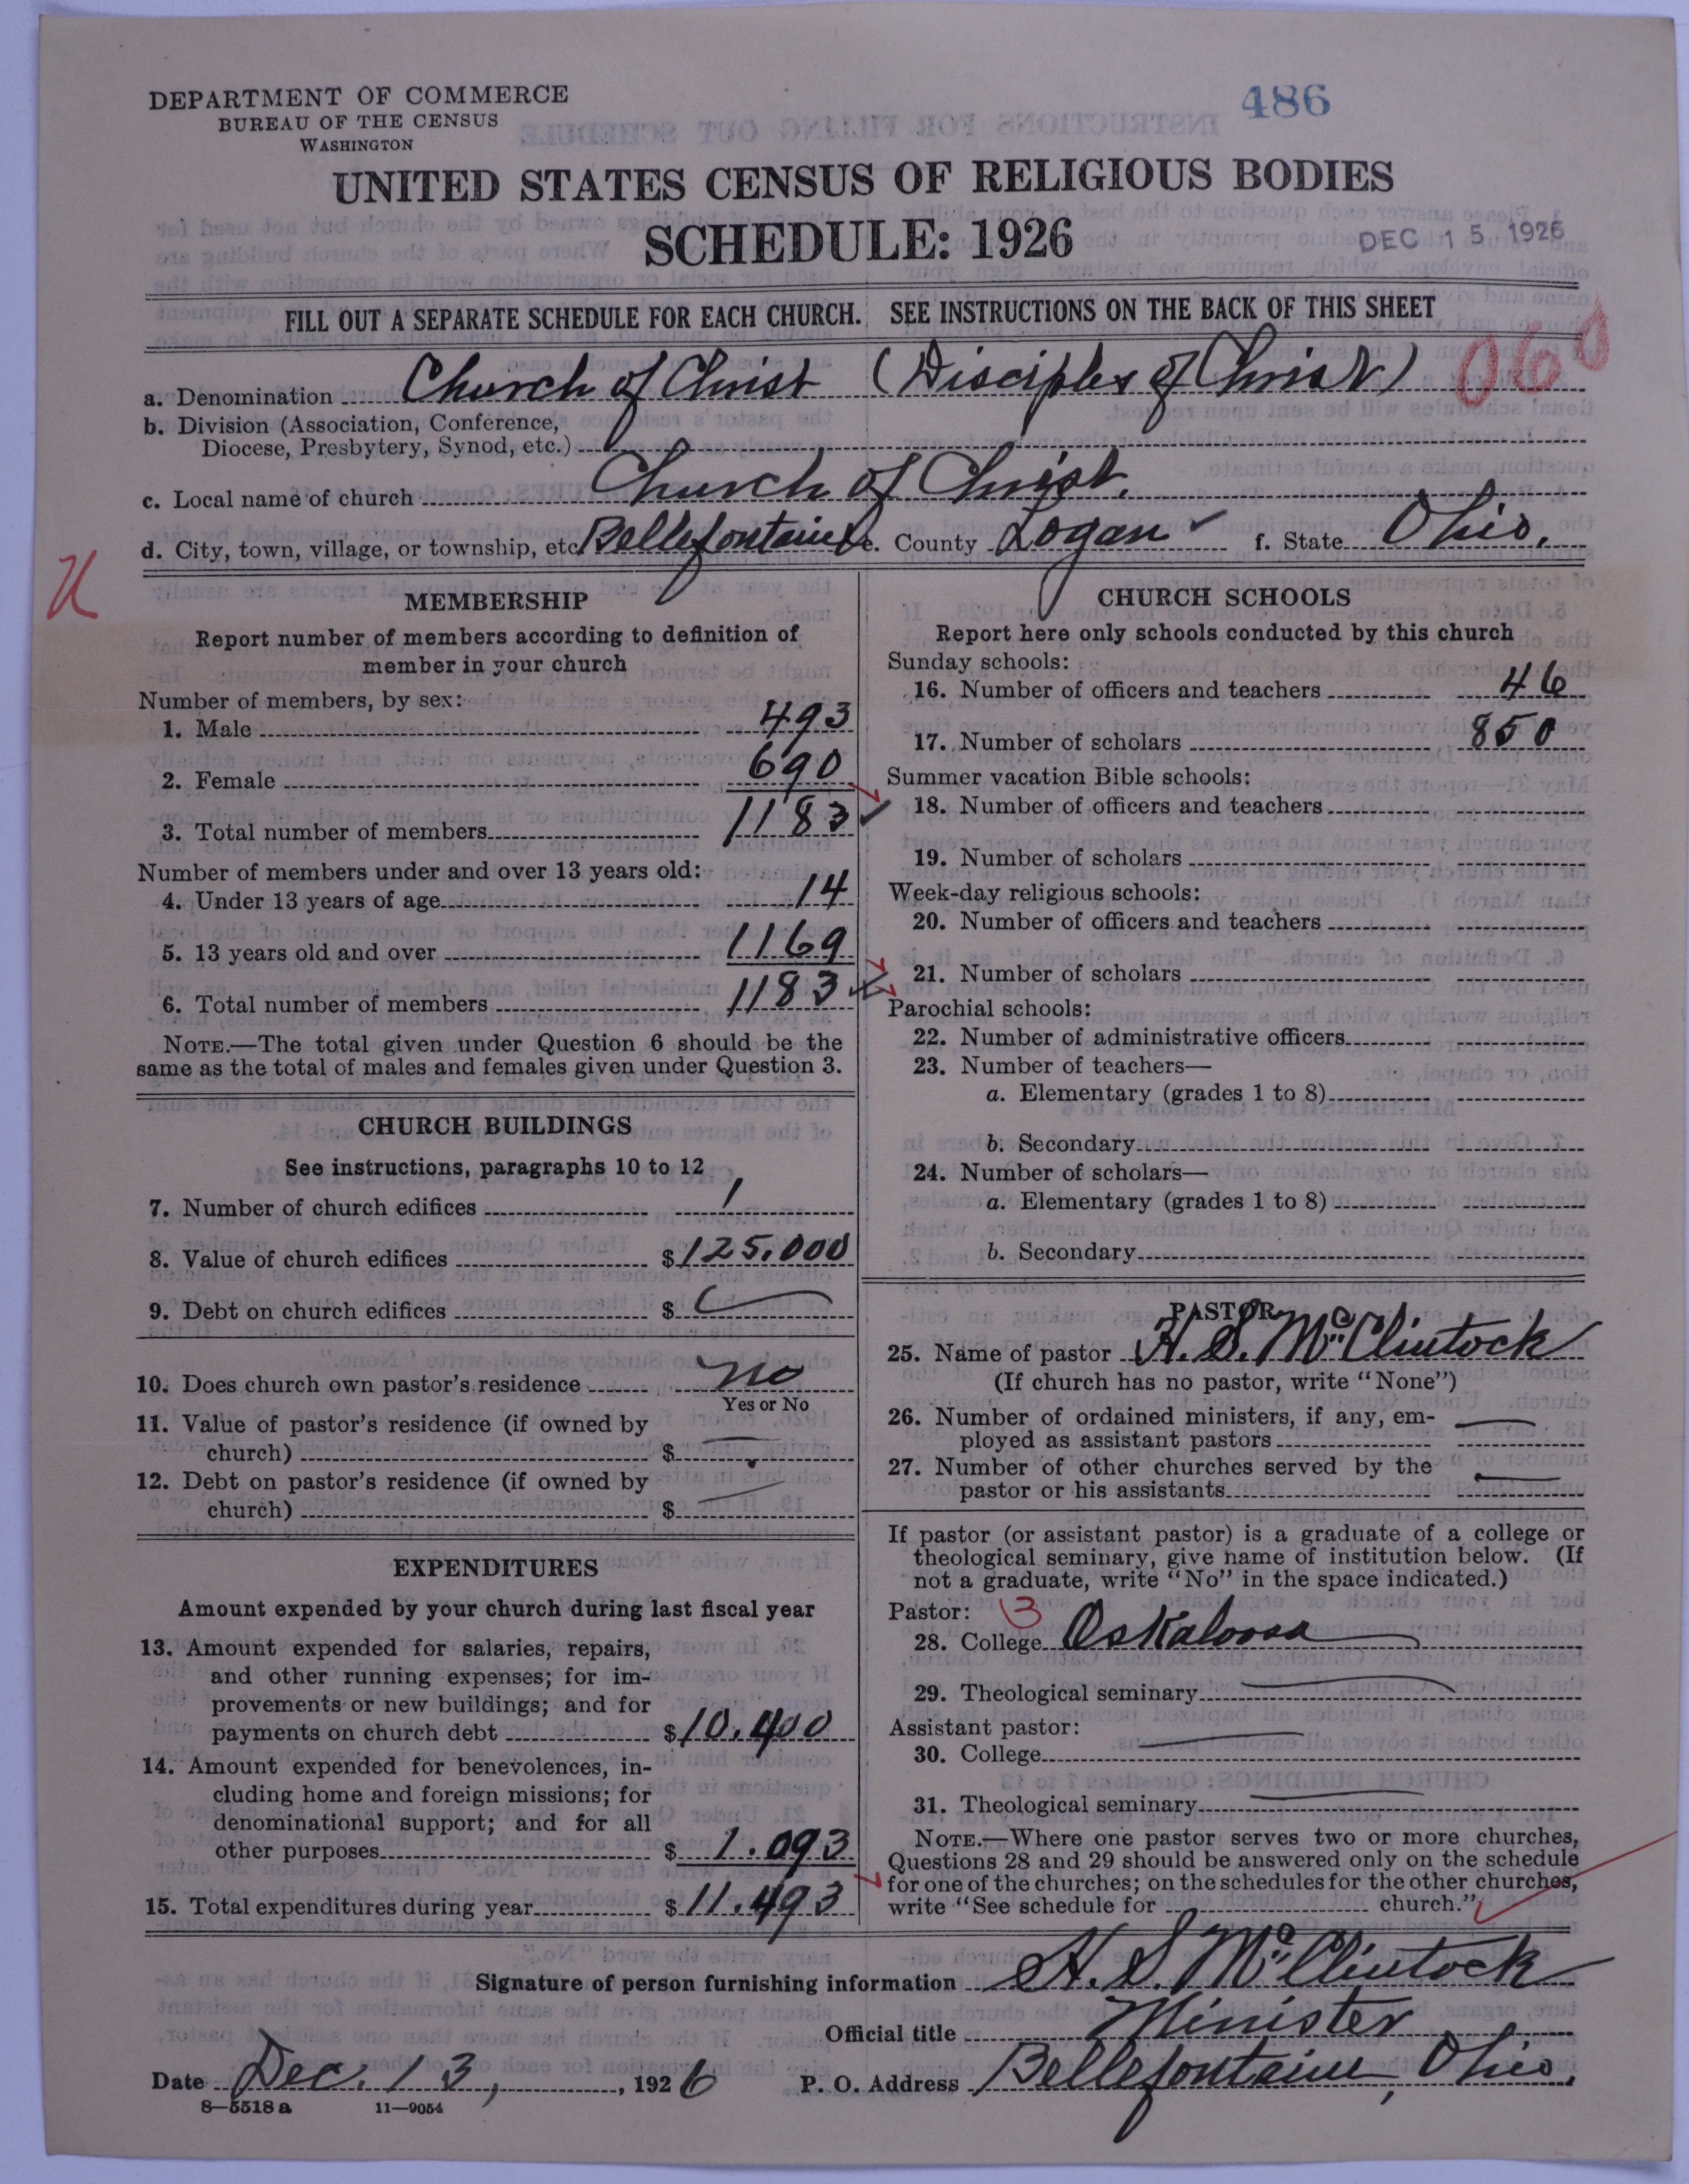 DEPARTMENT OF COMMERCE
BUREAU OF THE CENSUS
WASHINGTON
486
UNITED STATES CENSUS OF RELIGIOUS BODIES
SCHEDULE: 1926
DEC 15 1926
FILL OUT A SEPARATE SCHEDULE FOR EACH CHURCH. SEE INSTRUCTIONS ON THE BACK OF THIS SHEET
a. Denomination Church of Christ (Disciples of Christ) 060
b. Division (Association, Conference,
Diocese, Presbytery, Synod, etc.)
c. Local name of church Church of Christ.
d. City, town, village, or township, etc. Bellefontaine e. County Logan f. State Ohio.
MEMBERSHIP
Report number of members according to definition of
member in your church
Number of members, by sex:
1. Male 493
2. Female 690
3. Total number of members 1183
Number of members under and over 13 years old:
4. Under 13 years of age 14
5. 13 years old and over 1169
6. Total number of members 1183
NOTE.—The total given under Question 6 should be the
same as the total of males and females given under Question 3.
CHURCH BUILDINGS
See instructions, paragraphs 10 to 12
7. Number of church edifices 1
8. Value of church edifices $125.000
9. Debt on church edifices $
10. Does church own pastor's residence no
Yes or No
11. Value of pastor's residence (if owned by
church) $
12. Debt on pastor's residence (if owned by
church) $
EXPENDITURES
Amount expended by your church during last fiscal year
13. Amount expended for salaries, repairs,
and other running expenses; for im-
provements or new buildings; and for
payments on church debt $10.400
14. Amount expended for benevolences, in-
cluding home and foreign missions; for
denominational support; and for all
other purposes $1.093
15. Total expenditures during year $11.493
CHURCH SCHOOLS
Report here only schools conducted by this church
Sunday schools:
16. Number of officers and teachers 46
17. Number of scholars 850
Summer vacation Bible schools:
18. Number of officers and teachers
19. Number of scholars
Week-day religious schools:
20. Number of officers and teachers
21. Number of scholars
Parochial schools:
22. Number of administrative officers
23. Number of teachers—
a. Elementary (grades 1 to 8)
b. Secondary
24. Number of scholars—
a. Elementary (grades 1 to 8)
b. Secondary
PASTOR
25. Name of pastor H. S. McClintock
(If church has no pastor, write "None")
26. Number of ordained ministers, if any, em-
ployed as assistant pastors
27. Number of other churches served by the
pastor or his assistants
If pastor (or assistant pastor) is a graduate of a college or
theological seminary, give name of institution below. (If
not a graduate, write "No" in the space indicated.)
Pastor: 3
28. College Oskaloosa
29. Theological seminary
Assistant pastor:
30. College
31. Theological seminary
NOTE.—Where one pastor serves two or more churches,
Questions 28 and 29 should be answered only on the schedule
for one of the churches; on the schedules for the other churches,
write "See schedule for church."
Signature of person furnishing information H. S. McClintock
Official title Minister
Date Dec. 13, 1926 P. O. Address Bellefontaine, Ohio.
8—5518 a 11—9054